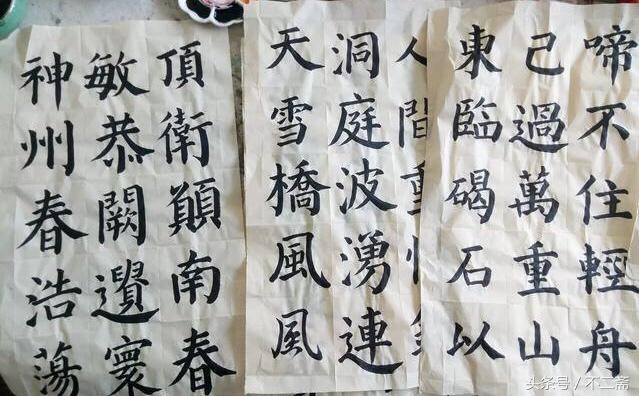 啼不住輕舟
己過萬重山
東臨碣石以
人間重
洞庭波湧連
天雪橋風風
頂衛顛南春
敏恭闕寰
神州春浩蕩
头条号 / 不二斋